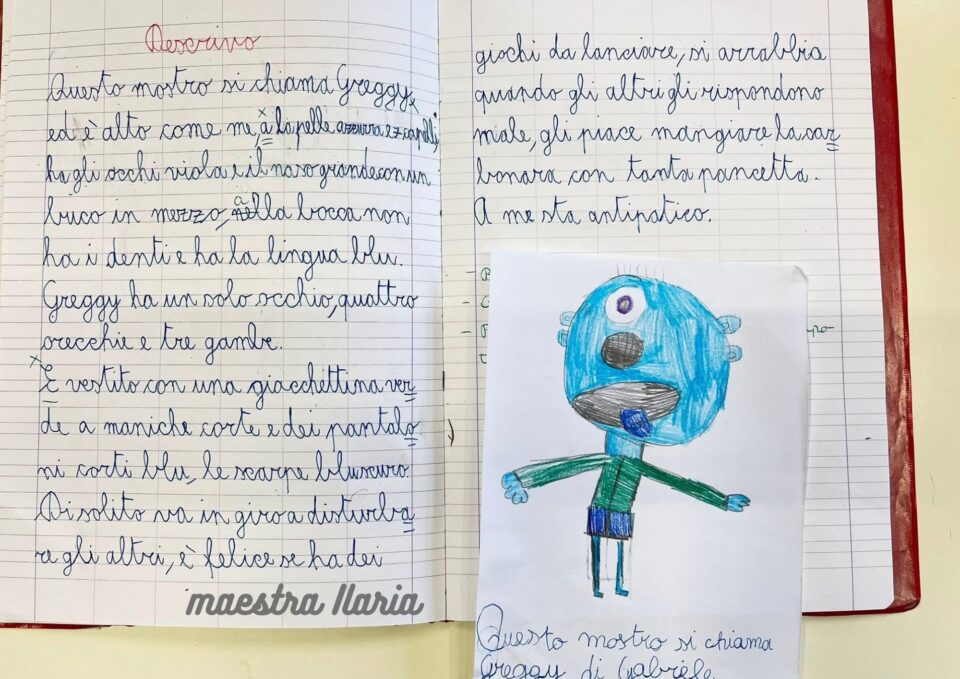 Descrivo
Questo mostro si chiama Greggy,
ed è alto come me, a la pelle azzurra e capelli,
ha gli occhi viola e il naso grande con un
buco in mezzo, nella bocca non
ha i denti e ha la lingua blu.
Greggy ha un solo occhio, quattro
orecchie e tre gambe.
È vestito con una giacchettina ver
de a maniche corte e dei pantalo
ni corti blu, le scarpe blu scuro.
Di solito va in giro a disturba
re gli altri, è felice se ha dei
maestra Ilaria
giochi da lanciare, si arrabbia
quando gli altri gli rispondono
male, gli piace mangiare la car
bonara con tanta pancetta.
A me sta antipatico.
Questo mostro si chiama
Greggy di Gabriele